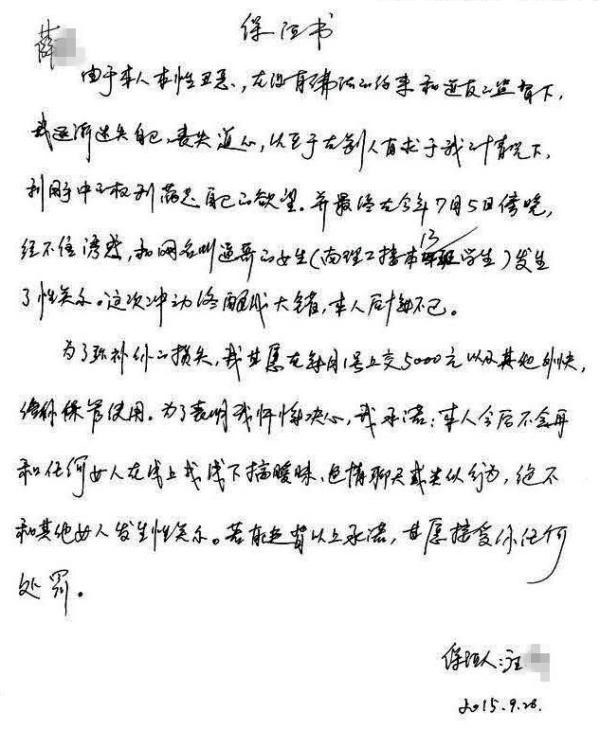 保证书
薛
由于本人本性丑恶,在没有佛法的约束和道友的监督下,
我逐渐迷失自己,丧失道心,以至于在别人有求于我的情况下,
利用手中的权利满足自己的欲望。并最终在今年7月5日傍晚,
经不住诱惑,和网名叫逍哥的女生(南理工接本13班学生)发生
了性关系。这次冲动终酿成大错,本人后悔不已。
为了弥补你的损失,我甘愿在每月1号上交5000元以及其他外快,
给你保管使用。为了表明我忏悔决心,我承诺:本人今后不会再
和任何女人在线上或线下搞暧昧、色情聊天或类似行为,绝不
和其他女人发生性关系。若有违背以上承诺,甘愿接受你任何
处罚。
保证人:汪
2015.9.28.